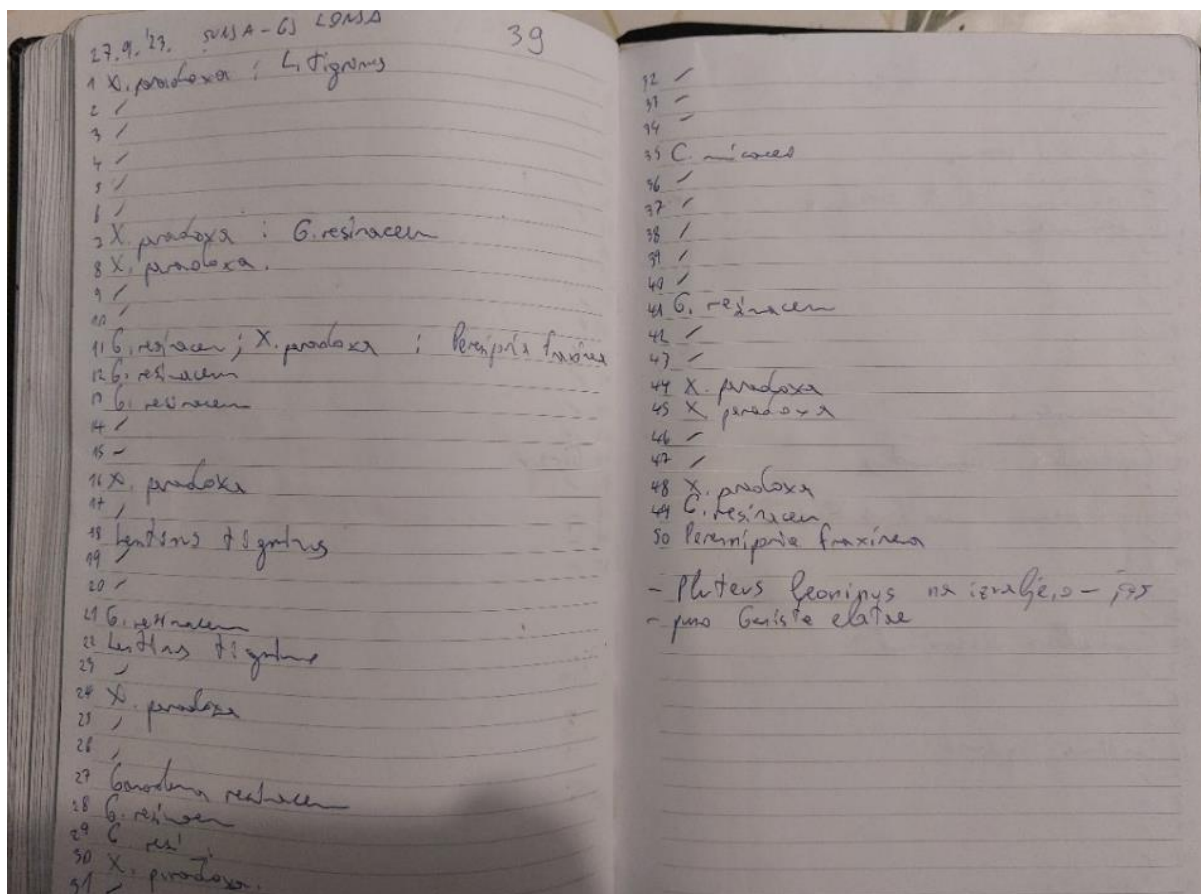 27.9.'23. ŠUMSA-GJ LONJA
39
1 X. paradoxa ; L. tigrinus
2 /
3 /
4 /
5 /
6 /
7 X. paradoxa ; G. resinaceum
8 X. paradoxa.
9 /
10 /
11 G. resinaceum ; X. paradoxa ; Perenipria fraxinea
12 G. resinaceum
13 G. resinaceum
14 /
15 -
16 X. paradoxa
17 /
18 Lentinus tigrinus
19 /
20 /
21 G. resinaceum
22 Lentinus tigrinus
23 /
24 X. paradoxa
25 /
26 /
27 Ganoderma resinaceum
28 G. resinaceum
29 G. resi
30 X. paradoxa.
31 /
32 /
33 /
34 /
35 C. micaceus
36 /
37 /
38 /
39 /
40 /
41 G. resinaceum
42 /
43 /
44 X. paradoxa
45 X. paradoxa
46 /
47 /
48 X. paradoxa
49 G. resinaceum
50 Perennipria fraxinea
- Pluteus leoninus na
- puno Genista elatae